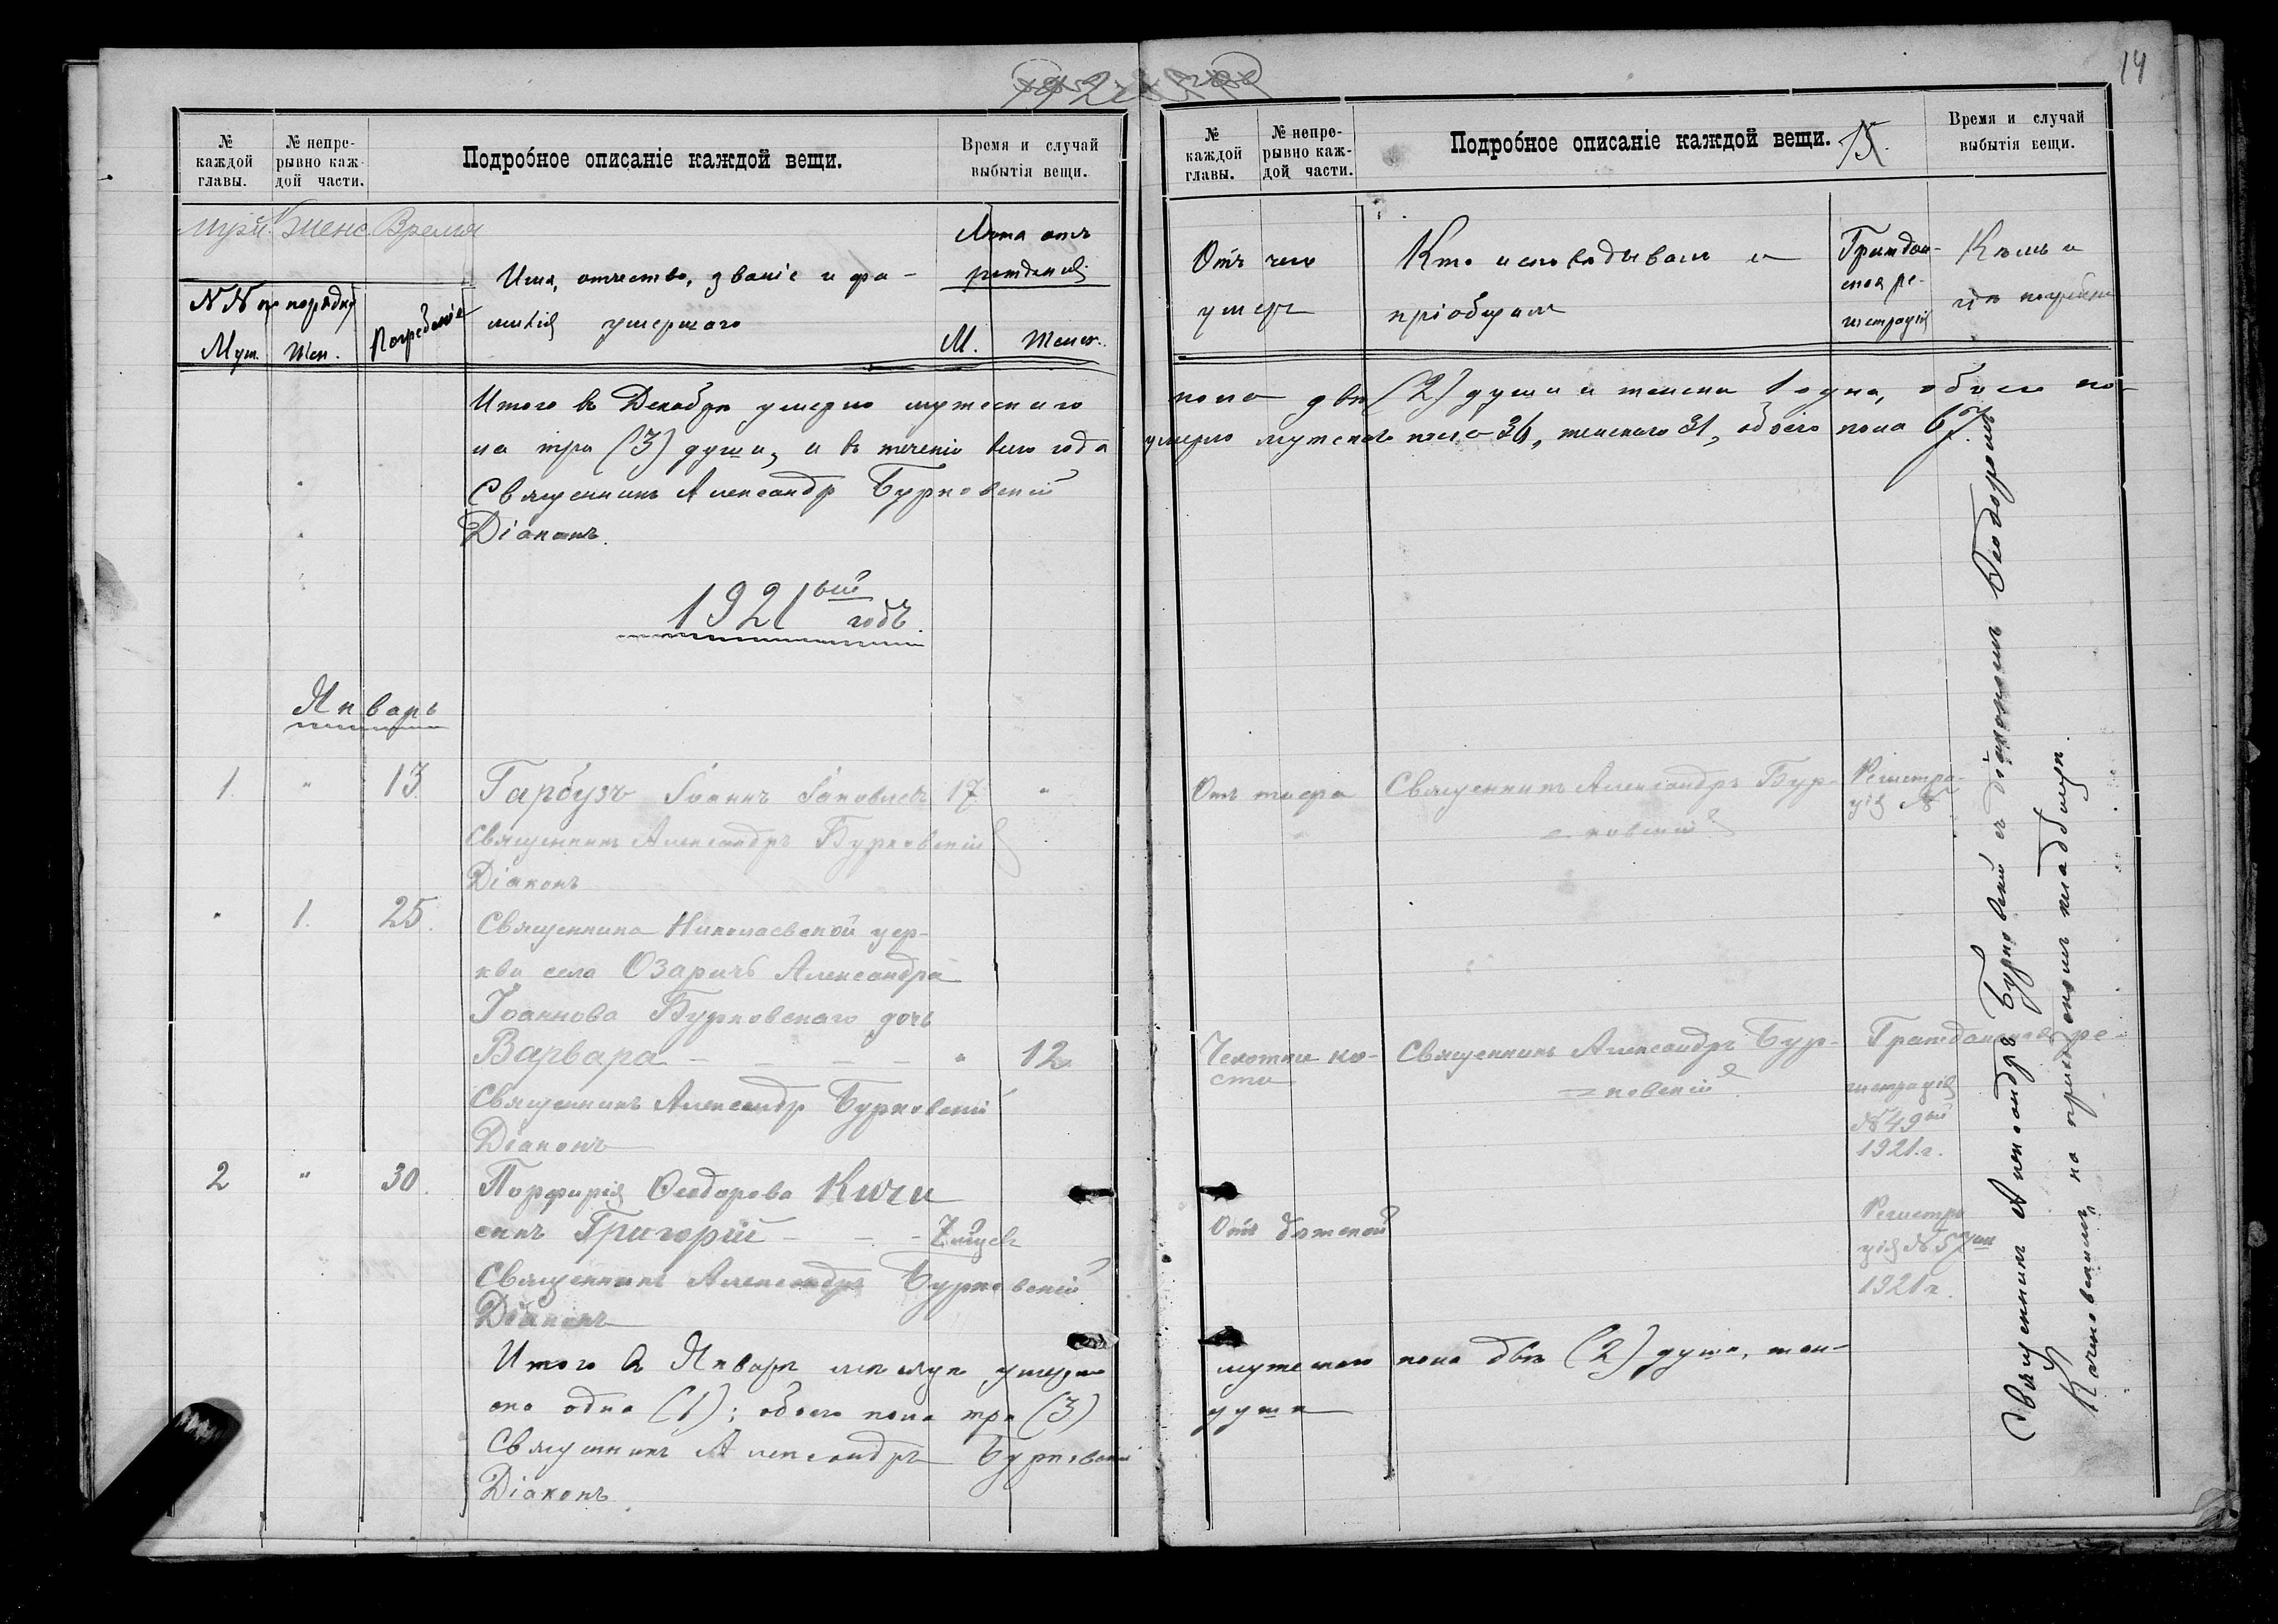 14
№ каждой главы.
№ непрерывно каждой части.
Подробное описаніе каждой вещи.
Время и случай выбытія вещи.
Муж. Женс Время
N N по порядку
Муж. Жен.
Погребенія
Имя, отчество, званіе и фа-
милія умершаго
Лѣта отъ
рожденія
М. Женск.
Итого въ Декабрѣ умерло мужескаго
ла три (3) души, и въ теченіе всего года
Священникъ Александр Бурковскій
Діаконъ.
1921 вый годъ
Январь
1. " 13 Гарбузъ Іоаннъ Іаковлевъ 17 "
Священникъ Александръ Бурковскій
Діаконъ
" 1. 25. Священника Николаевской цер-
кви села Озаричъ Александра
Іоаннова Бурковскаго дочь
Варвара - - - - " 12
Священникъ Александр Бурковскій
Діаконъ
2 " 30. Порфирія Ѳеодорова Кичи
сынъ Григорій - - - 7 мѣсяц
Священникъ Александръ Бурковскій
Діаконъ
Итого въ Январѣ мѣсяцѣ умерло
ско одна (1); обоего пола три (3)
Священникъ Александръ Бурковскій
Діаконъ.
№ каждой главы.
№ непрерывно каждой части.
Подробное описаніе каждой вещи. 15.
Время и случай выбытія вещи.
Отъ чего
умеръ
Кто исповѣдывалъ и
пріобщалъ
Граждан-
ская ре-
гистрація
Кѣмъ и
гдѣ погребенъ
пола двѣ (2) души и женска 1 одна, обоего по-
умерло мужскаго пола 36, женскаго 31, обоего пола 67.
Отъ тифа Священникъ Александръ Бур- Регистра-
ція №
= ковскій
Чахотки ко-
сти
Священникъ Александръ Бур-
= ковскій
Гражданская ре-
гистрація
№ 49 ый
1921. г.
Отъ
Регистра
ція № 57
1921 г.
мужескаго пола двѣ (2) души, жен-
душа
Священникъ Александръ Бурковскій съ діакономъ Ѳеодоромъ
на приходскомъ кладбищѣ.